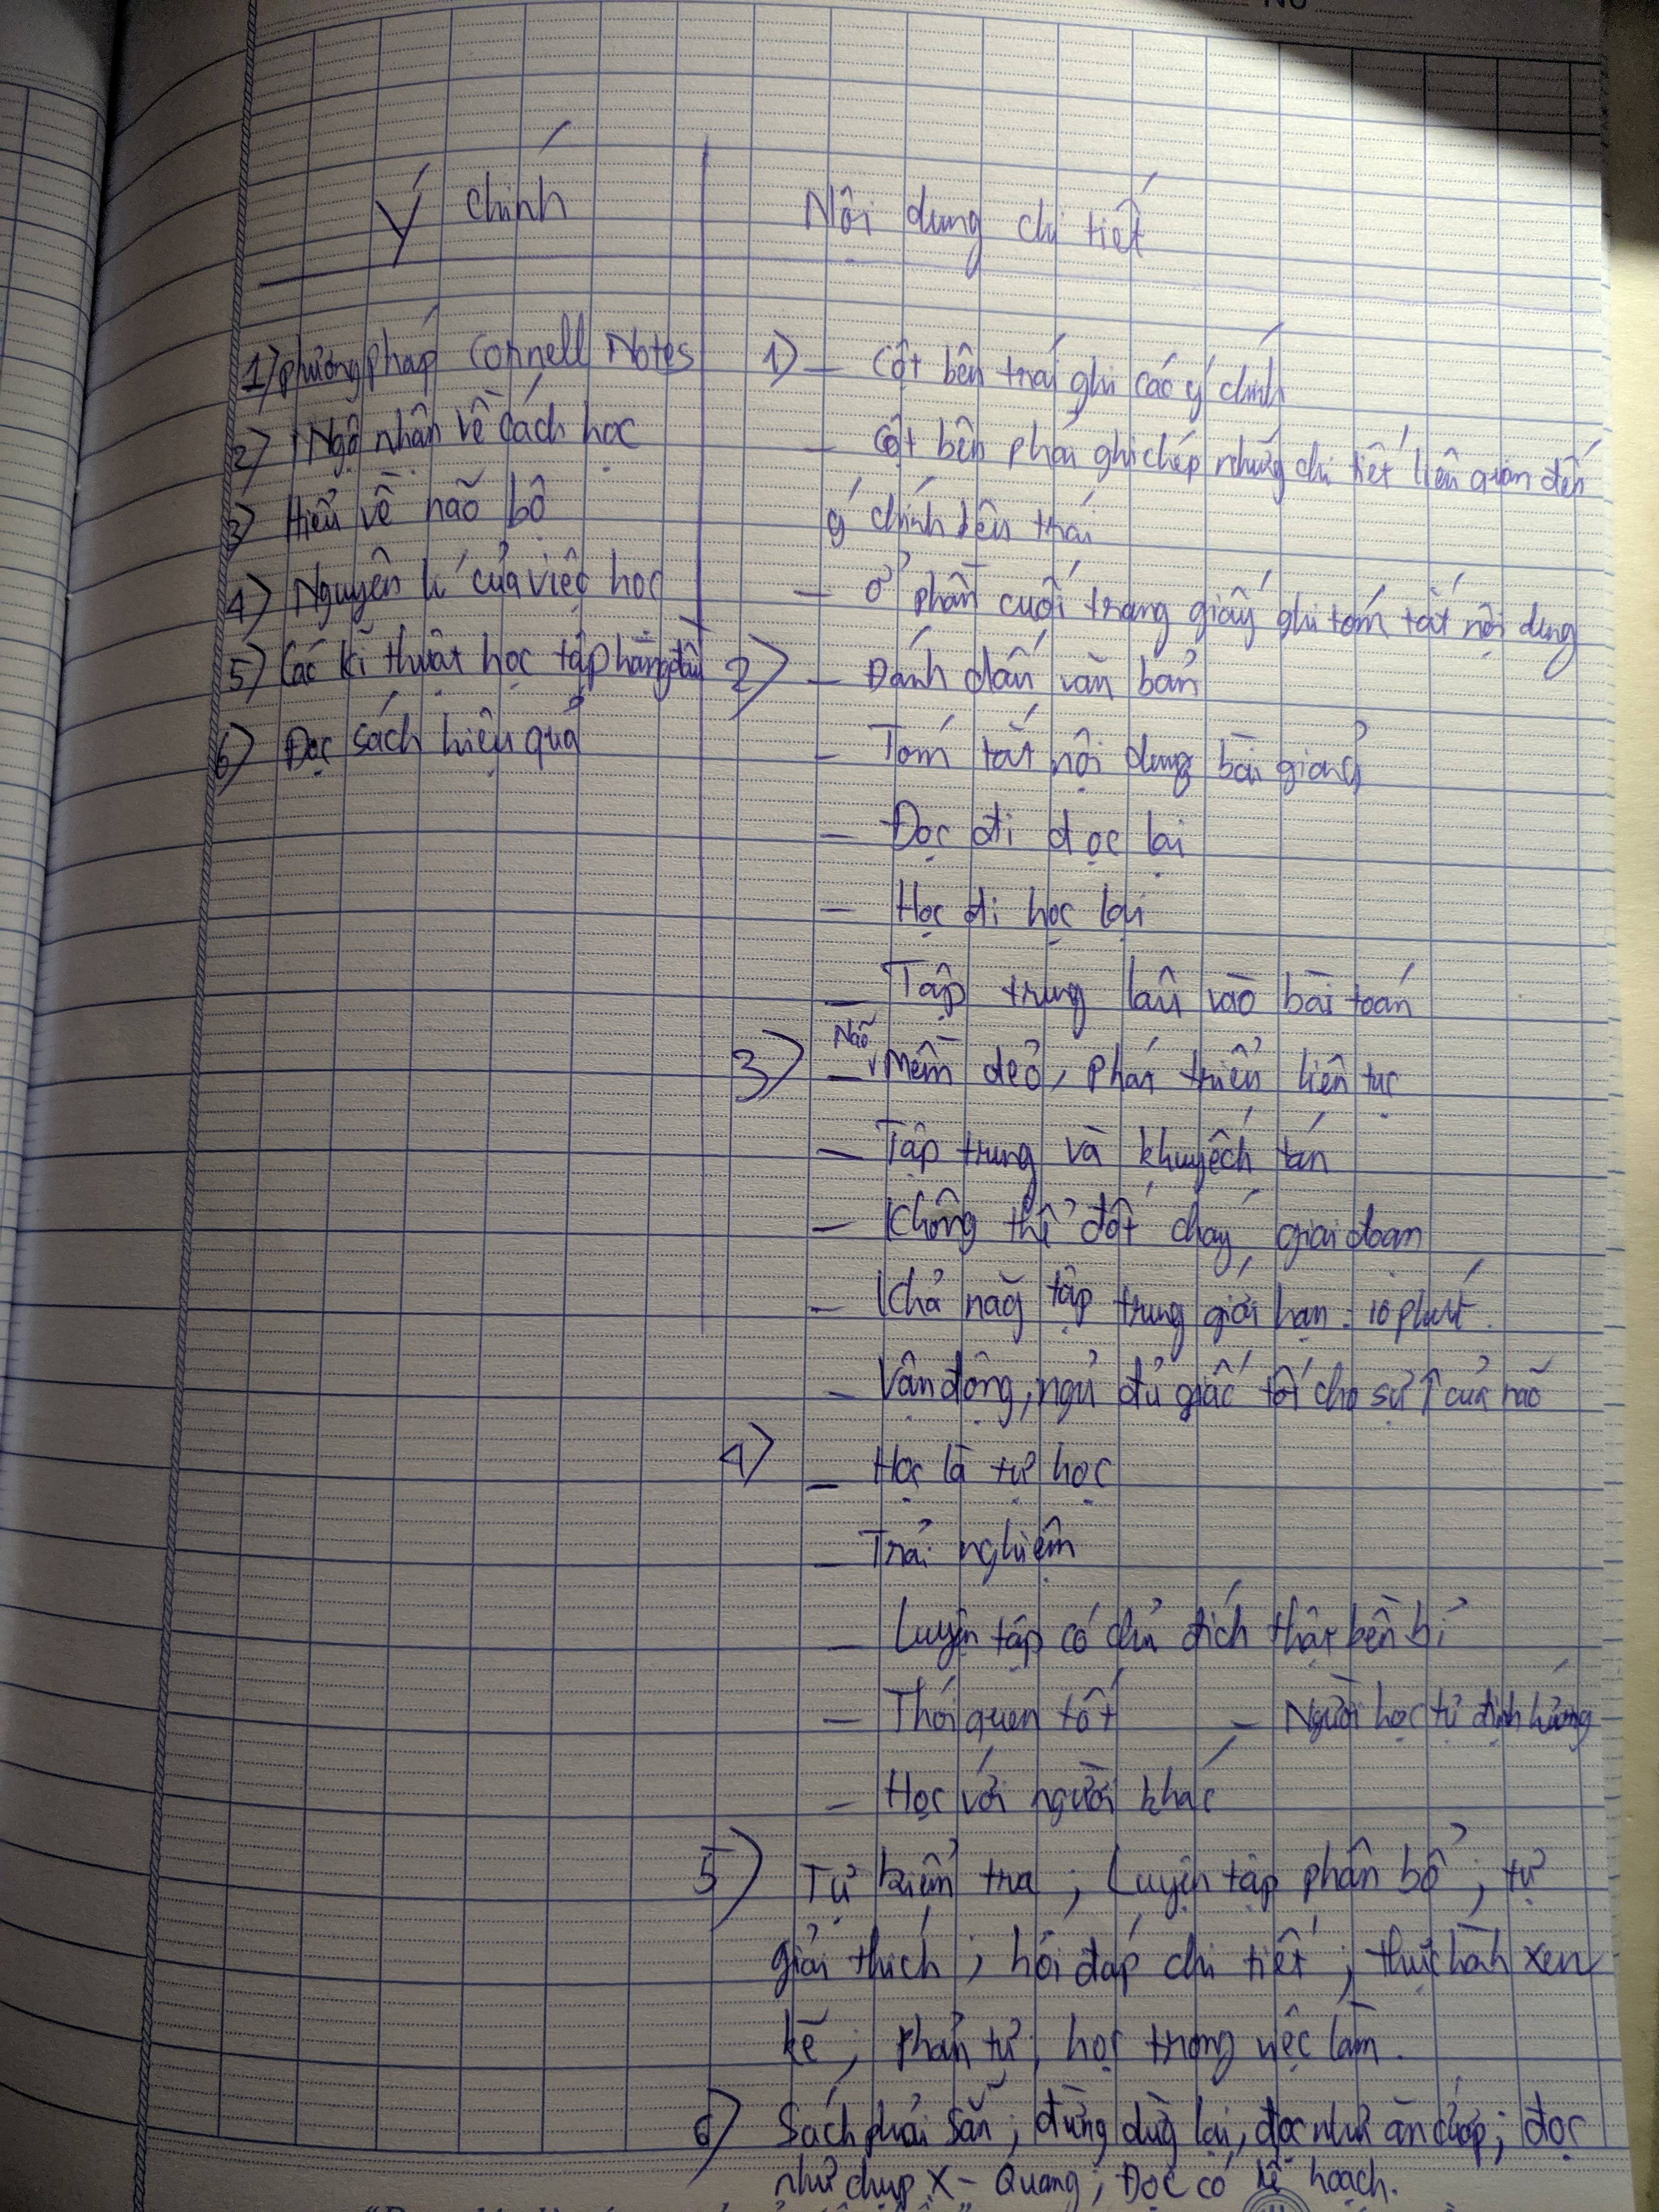 No
Ý chính
Nội dung chi tiết
1) phương pháp Cornell Notes
2) Ngộ nhận về cách học
3) Hiểu về não bộ
4) Nguyên lí của việc học
5) Các kĩ thuật học tập hàng đầu
6) Đọc sách hiệu quả
1) – Cột bên trái ghi các ý chính
– Cột bên phải ghi chép những chi tiết liên quan đến
ý chính bên trái
– Ở phần cuối trang giấy ghi tóm tắt nội dung
2) – Đánh dấu văn bản
– Tóm tắt nội dung bài giảng
– Đọc đi đọc lại
– Học đi học lại
– Tập trung lâu vào bài toán
3) – Não mềm dẻo, phát triển liên tục
– Tập trung và khuyếch tán
– Không thể đốt cháy giai đoạn
– Khả năng tập trung giới hạn. 10 phút.
– Vận động, ngủ đủ giấc tốt cho sự ↑ của não
4) – Học là tự học
– Trải nghiệm
– Luyện tập có chủ đích thật bền bỉ
– Thói quen tốt – Người học tự định hướng
– Học với người khác
5) Tự kiểm tra ; Luyện tập phân bổ ; tự
giải thích ; hỏi đáp chi tiết ; thực hành xen
kẽ ; phản tư ; học trong việc làm.
6) Sách phải sẵn ; đừng dừng lại, đọc như ăn cướp ; đọc
như chụp X – Quang ; Đọc có kế hoạch.